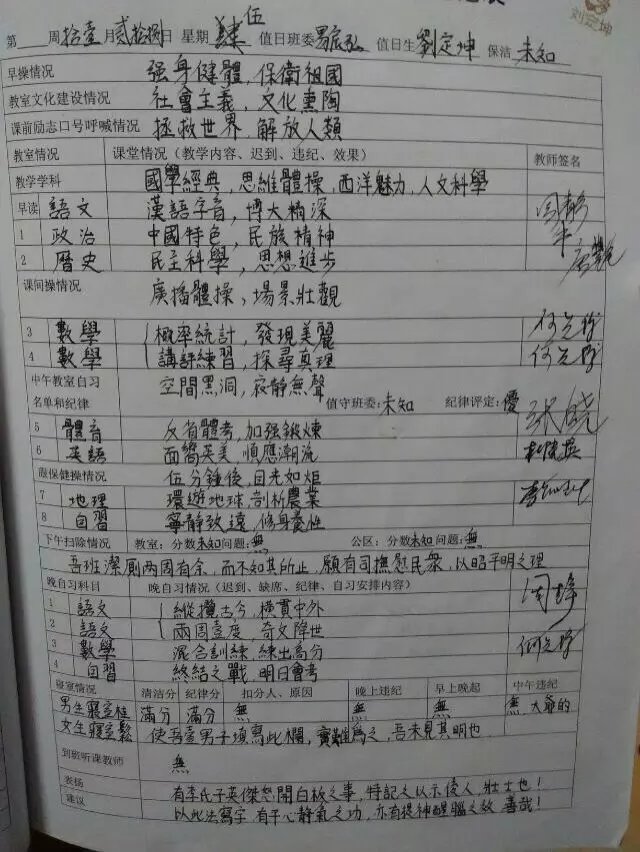 刘定坤
伍
第 周拾壹月贰拾捌日 星期肆 值日班委 值日生劉定坤 保洁未知
早操情况 强身健體,保衛祖國
教室文化建设情况 社會主義,文化熏陶
课前励志口号呼喊情况 拯救世界,解放人類
教室情况 课堂情况(教学内容、迟到、违纪、效果) 教师签名
教学学科 國學經典,思維體操,西洋魅力,人文科學
早读 語文 漢語字音,博大精深
1 政治 中國特色,民族精神
2 曆史 民主科學,思想進步
课间操情况 廣播體操,場景壯觀
3 數學 概率統計,發現美麗
4 數學 講評練習,探尋真理
中午教室自习 空間黑洞,寂静無聲
名单和纪律 值守班委:未知 纪律评定:優
5 體育 反省體考,加强鍛煉
6 英語 面嚮英美,順應潮流
眼保健操情况 伍分鍾後,目光如炬
7 地理 環遊地球,剖析農業
8 自習 寧静致遠,修身養性
下午扫除情况 教室:分数未知问题:無 公区:分数未知问题:無
吾班潔厠两周有余,而不知其所止,願有司撫慰民衆,以昭平明之理
晚自习科目 晚自习情况(迟到、缺席、纪律、自习安排内容)
1 語文 縱攬古今,橫貫中外
2 語文 两周壹度,奇文降世
3 數學 混合訓練,練出高分
4 自習 終結之戰,明日會考
寝室情况 清洁分 纪律分 扣分人、原因 晚上违纪 早上晚起 中午违纪
男生寢室 滿分 滿分 無 無 無 無 大爺的
女生寢室 使吾壹男子填寫此欄,實 爲之,吾未見其明也
到班听课教师 無
表扬 有李氏子英傑怒開白板之事,特記之以示後人,壯士也!
建议 以此法寫字,有平心静氣之功,亦有提神醒腦之效,善哉!